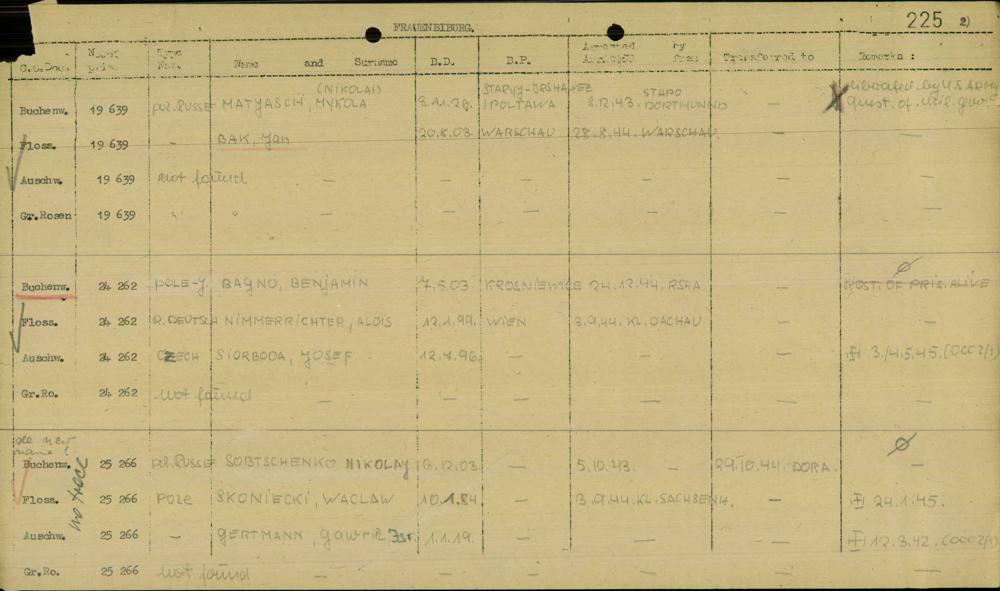 FRAUENBIBURG.
225 2)
Name and Surname B.D. B.P. Arrested by Transferred to Remarks :
(NIKOLAI)
Buchenw. 19 639 pol. RUSSE MATYASCH, MYKOLA 3.11.26. POLTAWA 3.12.43. STAPO DORTMUND — liberated by U.S. ARMY
Floss. 19 639 — BAK, Jan 20.8.03. WARSCHAU 28.8.44. WARSCHAU —
Auschw. 19 639 not found — — — — — —
Gr.Rosen 19 639 " " — — — — —
Buchenw. 24 262 POLE-J. BAGNO, BENJAMIN 7.5.03. KROSNIEWICE 24.12.44. RSHA — POST. OF PRIS. ALIVE
Floss. 24 262 R. DEUTSCH NIMMERRICHTER, ALOIS 12.1.99. WIEN 3.9.44. KL. DACHAU — —
Auschw. 24 262 CZECH SIORBODA, JOSEF 12.7.96. — — — 3./4.5.45. (OCC2/1)
Gr.Ro. 24 262 not found — — — — — —
name?
Buchenw. 25 266 pol. RUSSE SOBTSCHENKO NIKOLAY 6.12.03. — 5.10.43. — 29.10.44. DORA. —
no trace
Floss. 25 266 POLE SKONIECKI, WACLAW 10.1.84. — 3.9.44. KL. SACHSENH. — 24.1.45.
Auschw. 25 266 — GERTMANN, Gawril Isr. 1.1.19. — — — 12.3.42. (OCC2/1)
Gr.Ro. 25 266 not found — — — — — —